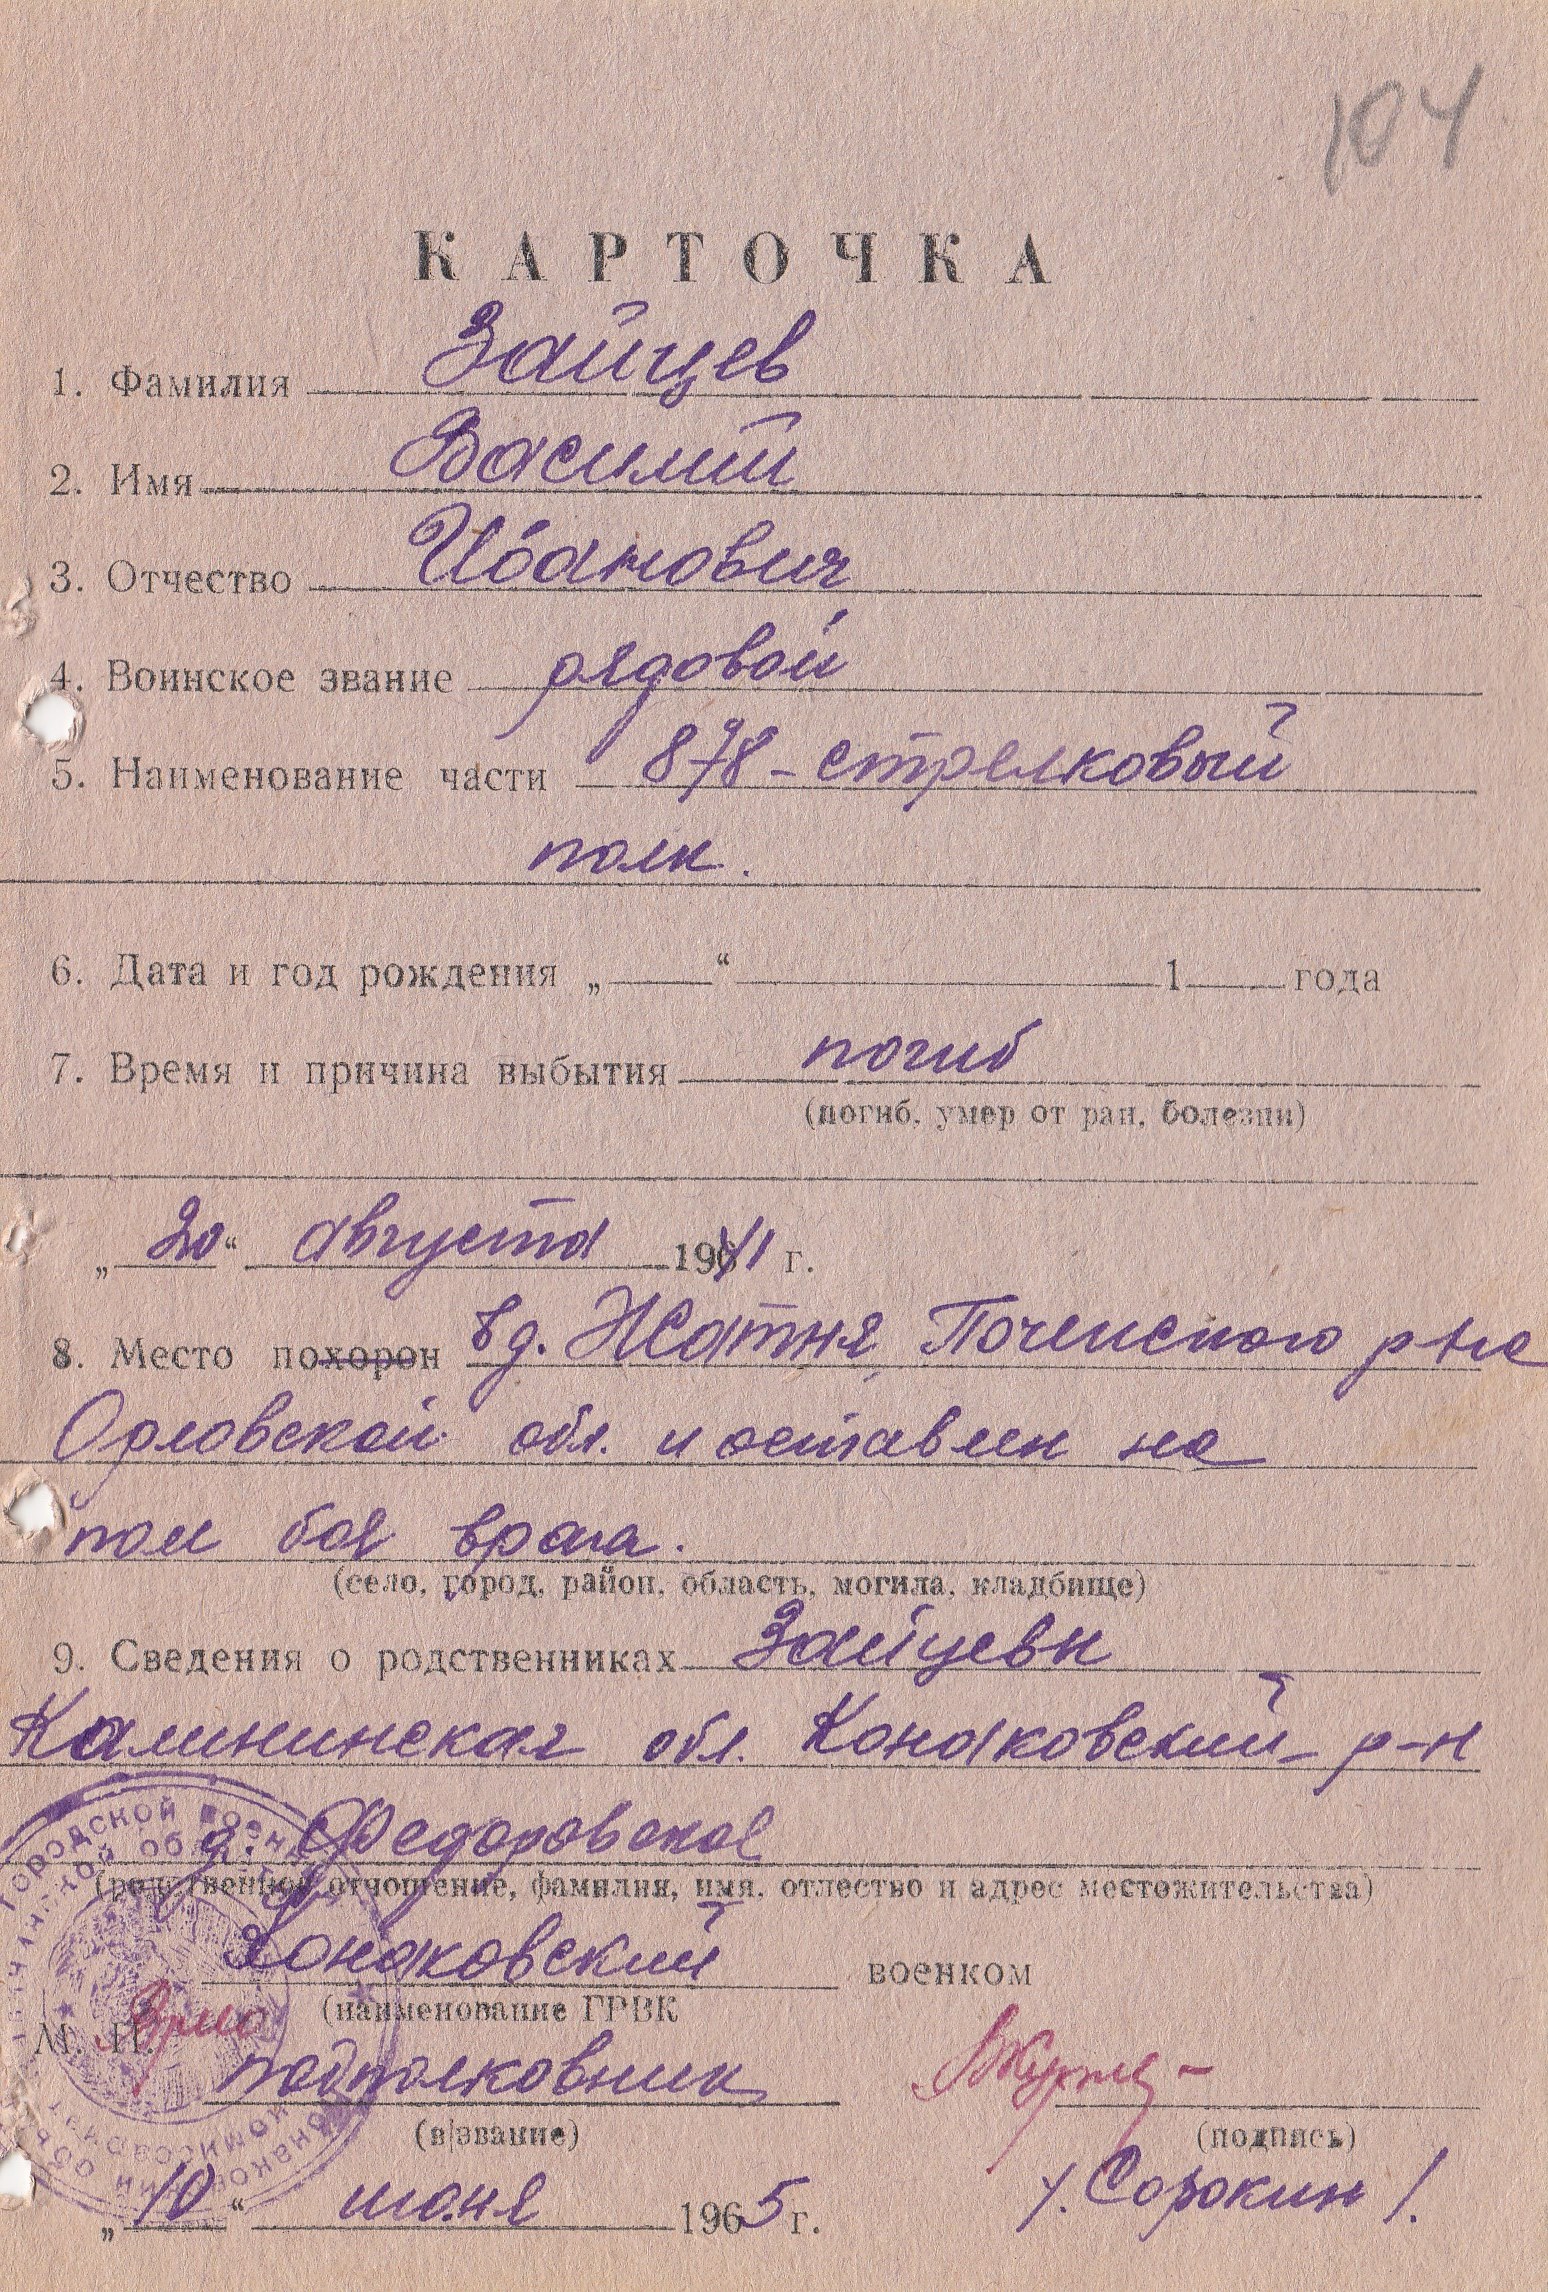 104
КАРТОЧКА
1. Фамилия Зайцев
2. Имя Василий
3. Отчество Иванович
4. Воинское звание рядовой
5. Наименование части 878 - стрелковый
полк.
6. Дата и год рождения „ “ 1 года
7. Время и причина выбытия погиб
(погиб, умер от ран, болезни)
„20“ августа 1941 г.
8. Место похорон в д. Жатня Почепского р-на
Орловской обл. и оставлен на
поле боя врага.
(село, город, район, область, могила, кладбище)
9. Сведения о родственниках Зайцевы
Калининская обл. Конаковский р-н
д. Федоровское
(родственное отчошение, фамилия, имя, отлество и адрес местожительства)
Конаковский военком
(наименование ГРВК
М. П.
подполковник
(в|звание) (подпись)
„10“ июня 1965 г. /. Сорокин /.